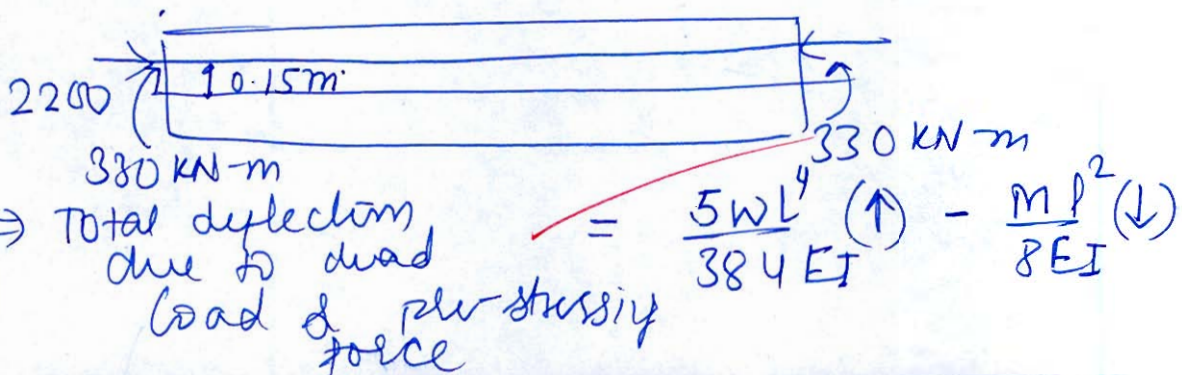 2200
0.15m
330 KN-m
330 KN-m
⇒ Total deflection
due to dead
load & pre-stressing
force
= 5wL⁴/384EI (↑) - Ml²/8EI (↓)